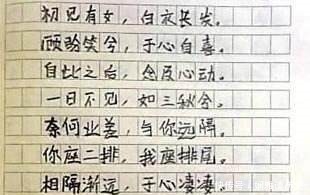 初见有女，白衣长发。
顾盼笑兮，于心自喜。
自此之后，念及心动。
一日不见，如三秋兮。
奈何业差，与你远隔。
你座二排，我座排尾。
相隔渐远，于心凄凄。